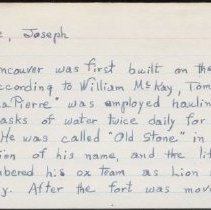 , Joseph
ncouver was first built on the
ccording to William McKay, Tom
a Pierre" was employed haulin
asks of water twice daily for
He was called "Old Stone" in
ion of his name, and the lit
bered his ox team as Lion a
y. After the fort was move